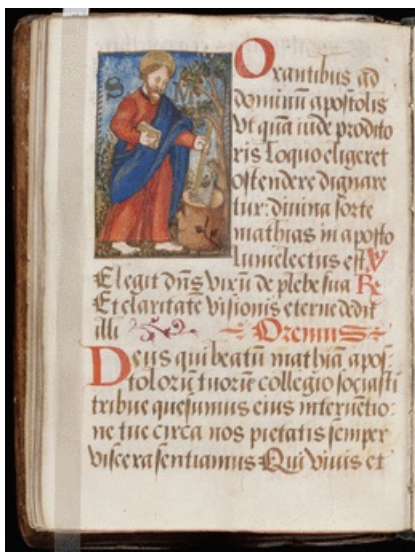 S M
Orantibus ad
dominū apostolis
Vt quā iude prodito
ris loquo eligeret
ostendere dignare
tur: diuina sorte
mathias in aposto
lum electus est ℣
Elegit dn̄s virū de plebe sua Re
Et claritate visionis eterne dedit
illi Oremus
Deus qui beatū mathiā apos
tolorū tuorū collegio sociasti
tribue quesumus eius interuētio:
ne tue circa nos pietatis semper
viscera sentiamus Qui viuis et